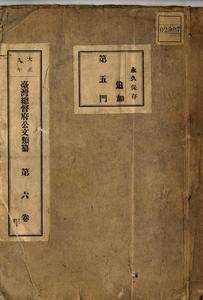 02907
永久保存
追加
第五門
大正九年
臺灣總督府公文類纂 第六卷